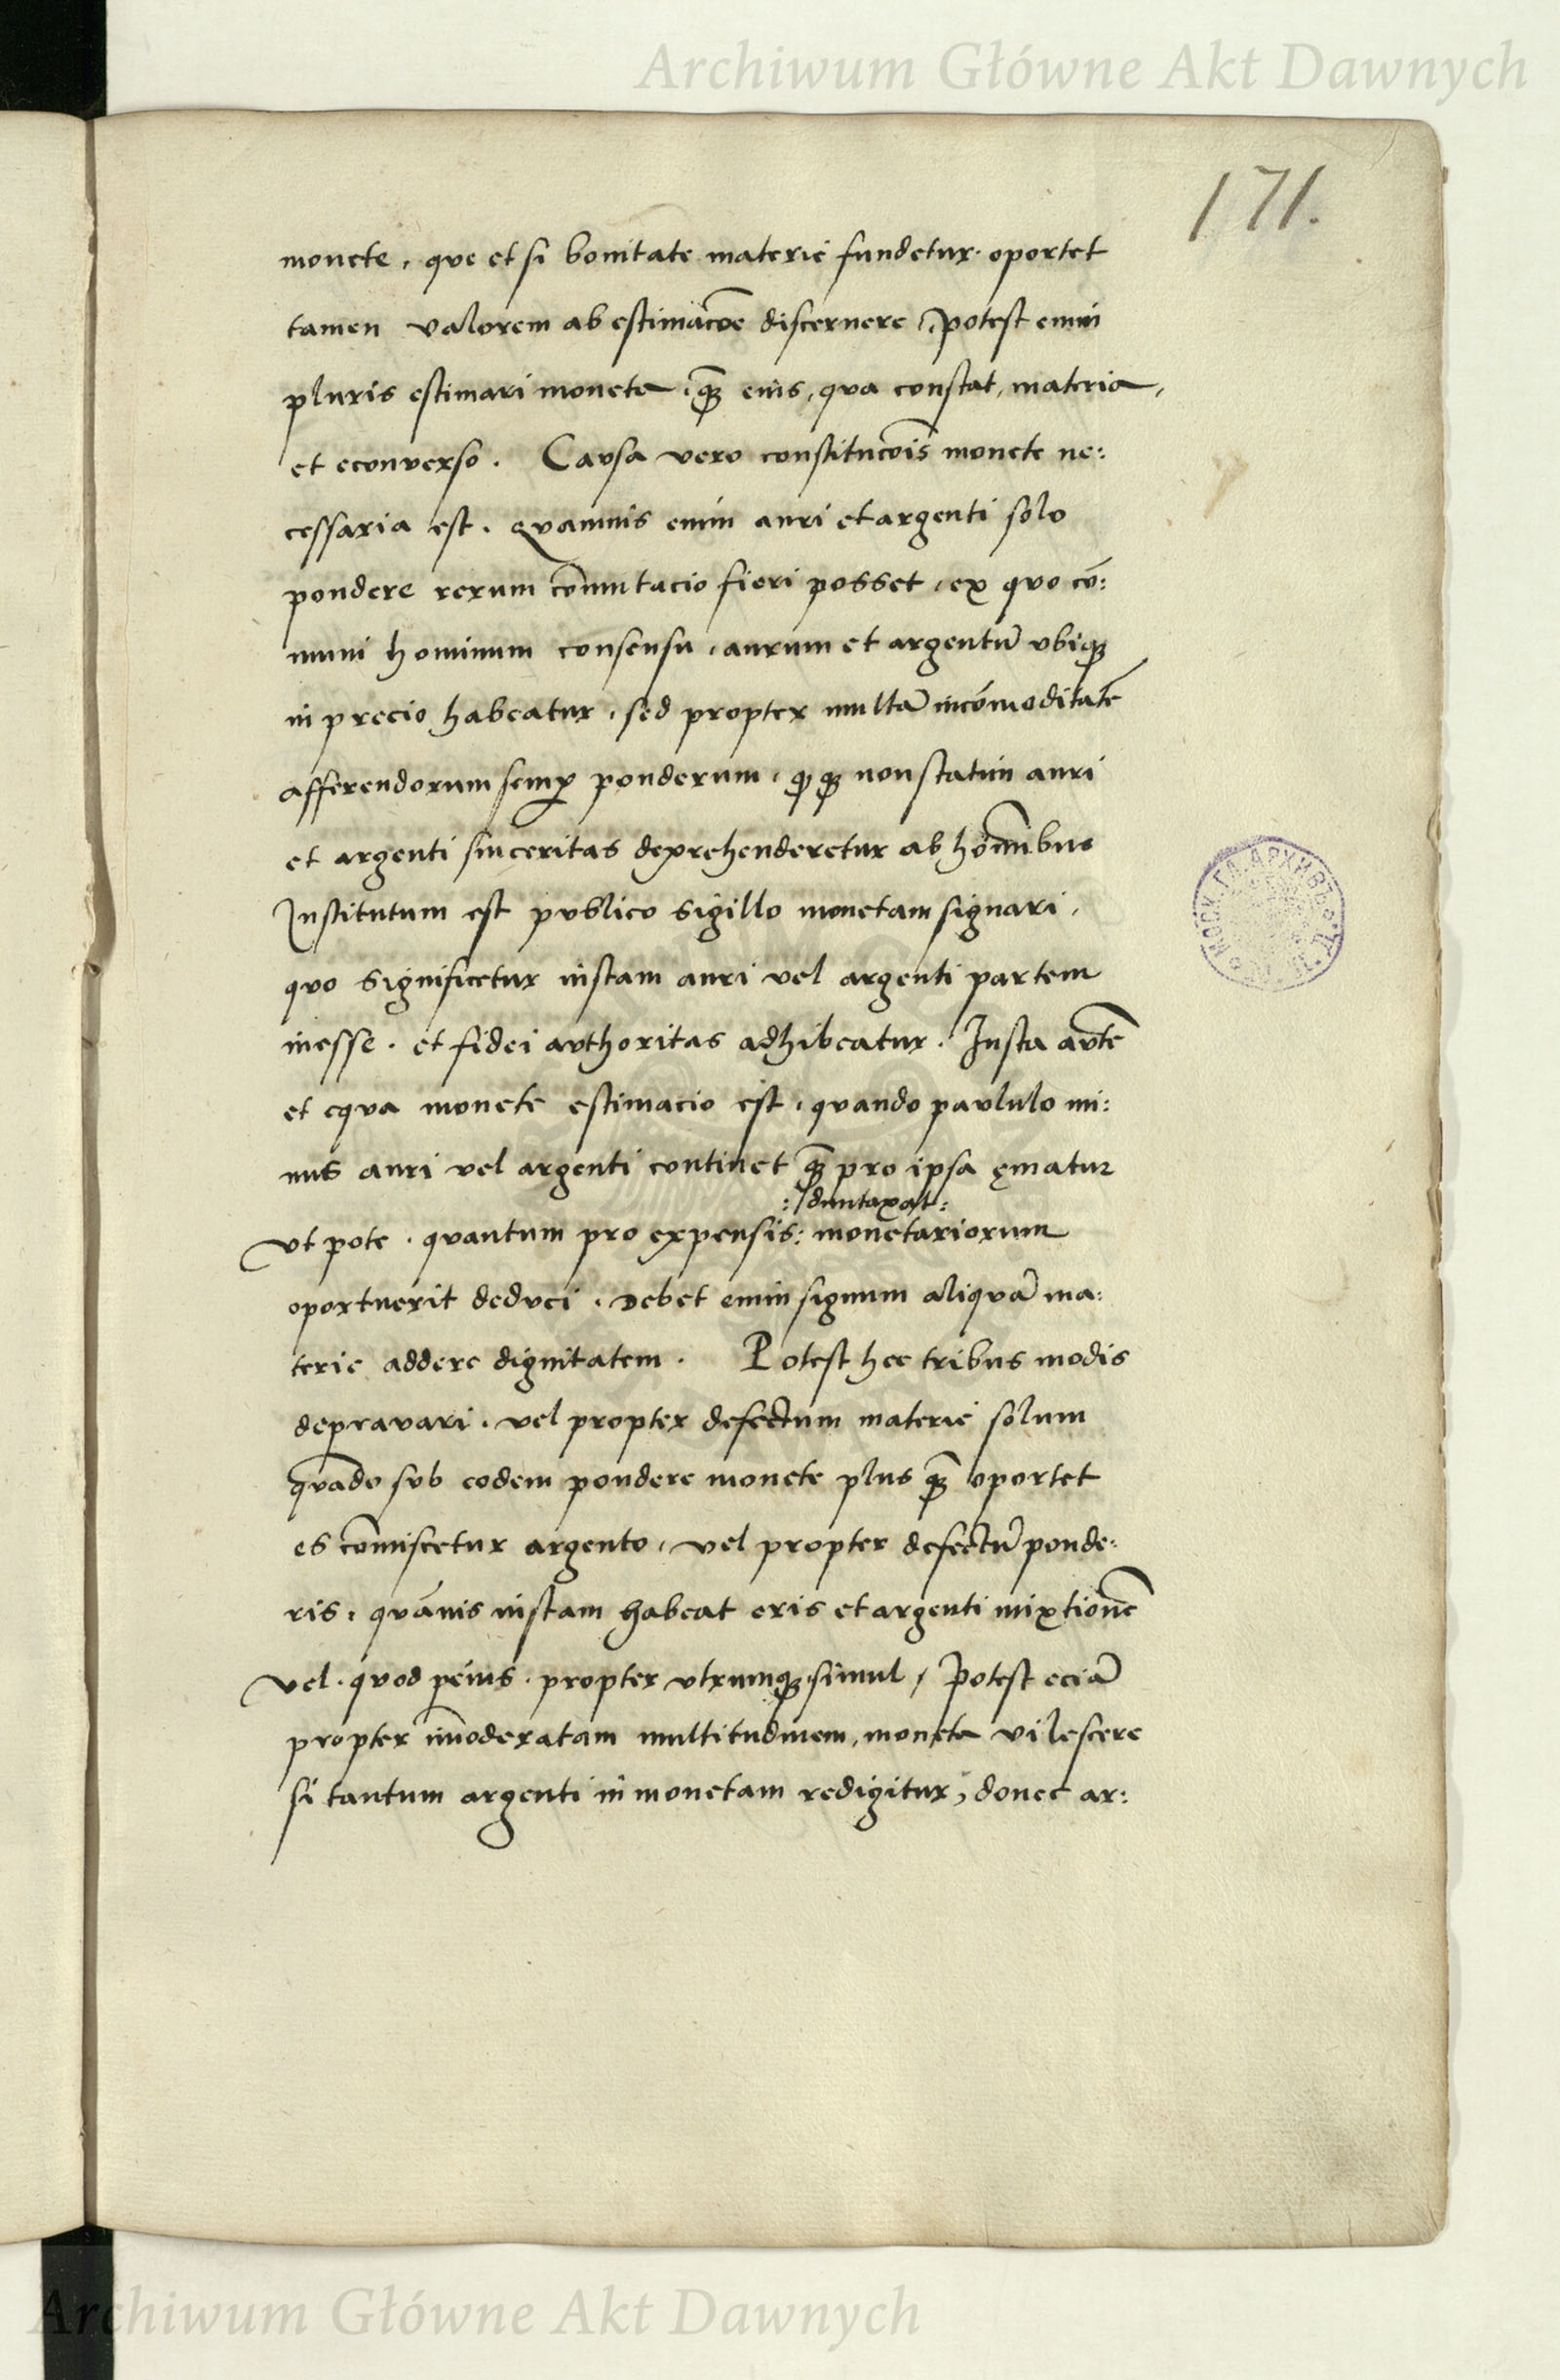 Archiwum Główne Akt Dawnych
171.
monete, que et si bonitate materie fundetur. oportet
tamen valorem ab estimac̄oe discernere, potest enim
pluris estimari moneta, q̃ꝫ eius, qua constat, materia,
et econverso. Cavsa vero constituc̄ois monete ne:
cessaria est. Qvamuis enim auri et argenti solo
pondere rerum cōmutacio fieri posset, ex quo cō:
muni hominum consensu, aurum et argentū vbiqꝫ
in precio habeatur, sed propter multā incōmoditatē
afferendorum semꝑ ponderum, ꝙ qꝫ non statim auri
et argenti sinceritas deprehenderetur ab hōminibus
Institutum est pvblico sigillo monetam signari,
qvo significetur iustam auri vel argenti partem
inesse. et fidei avthoritas adhibeatur. Iusta avtē
et eqva monete estimacio est, qvando pavlulo mi:
nus auri vel argenti continet q̃ꝫ pro ipsa ęmatur
:/duntaxat:
vt pote. qvantum pro expensis: monetariorum
oportuerit dedvci. Debet enim signum aliqvā ma:
terie addere dignitatem. Potest hec tribus modis
depravari. vel propter defectum materie solum
qvādo svb eodem pondere monete plus q̃ꝫ oportet
es cōmiscetur argento, vel propter defectū ponde:
ris. qvāuis iustam habeat eris et argenti mixtionē
vel. qvod peius. propter vtrumqꝫ simul, Potest eciā
propter im̄oderatam multitudinem, moneta vilescere
si tantum argenti in monetam redigitur, donec ar:
Archiwum Główne Akt Dawnych